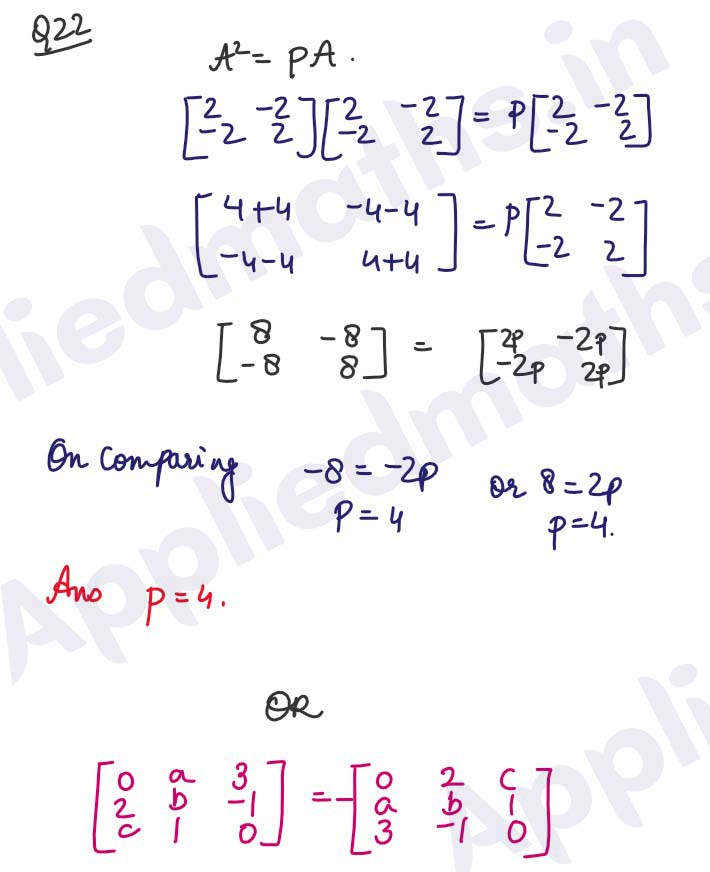 Q22
A² = pA.
[2 -2] [2 -2] = p [2 -2]
[-2 2] [-2 2] [-2 2]
[4+4 -4-4] = p [2 -2]
[-4-4 4+4] [-2 2]
[8 -8] = [2p -2p]
[-8 8] [-2p 2p]
On comparing -8 = -2p or 8 = 2p
p = 4 p = 4.
Ans p = 4.
OR
[0 a 3] = - [0 2 c]
[2 b -1] [a b 1]
[c 1 0] [3 -1 0]
Appliedmaths.in
Appliedmaths
Appli